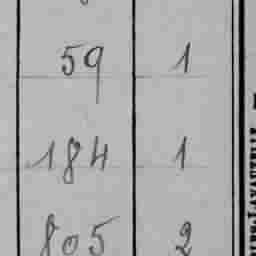 59 1
184 1
805 2